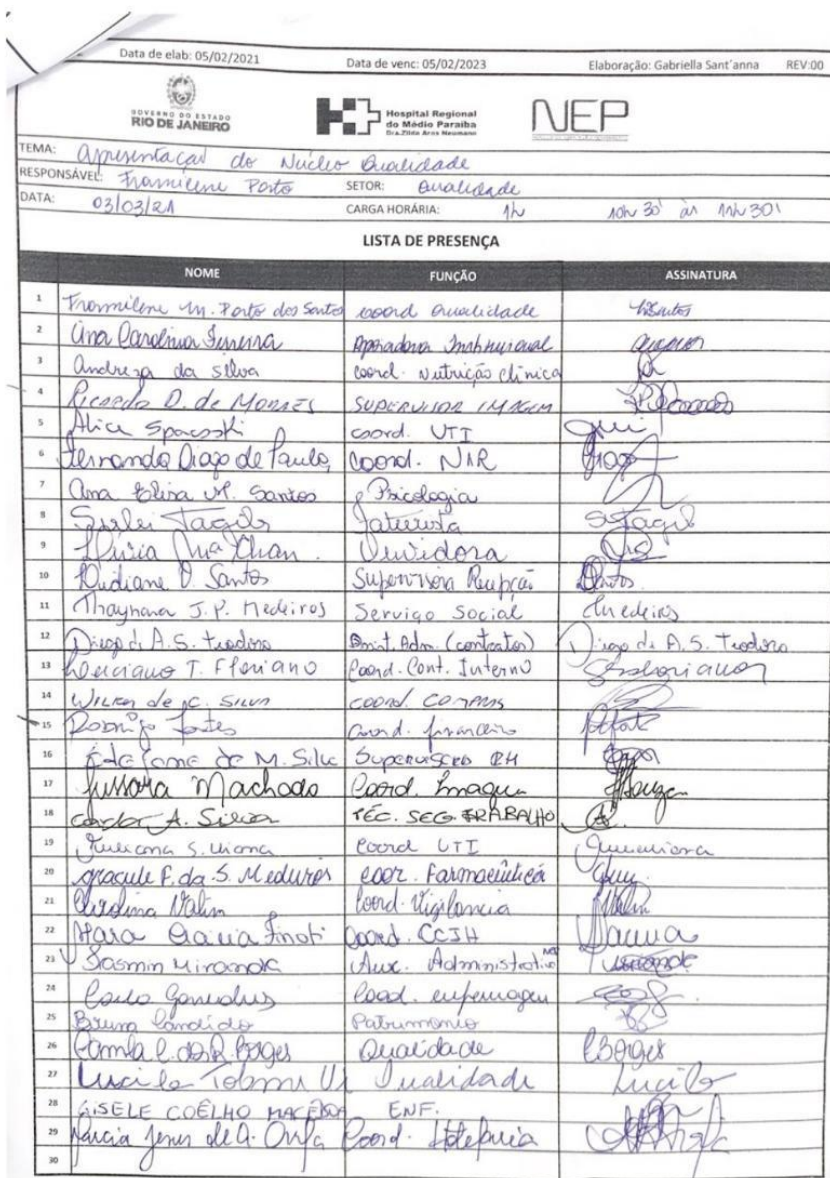 Data de elab: 05/02/2021 Data de venc: 05/02/2023 Elaboração: Gabriella Sant´anna REV:00
GOVERNO DO ESTADO
RIO DE JANEIRO
Hospital Regional
do Médio Paraíba
Dra.Zilda Arns Neumann
NEP
TEMA: Apresentaçaõ do Núcleo Qualidade
RESPONSÁVEL: Framilene Porto SETOR: Qualidade
DATA: 03/03/21 CARGA HORÁRIA: 1h 10h 30' às 11h 30'
LISTA DE PRESENÇA
NOME FUNÇÃO ASSINATURA
1 Framilene M. Porto dos Santos coord Qualidade
2 Ana Carolina Ferreira Apoiadora Institucional
3 Andreza da Silva coord. Nutrição Clínica
4 Ricardo D. de Moraes SUPERVISOR IMAGEM
5 Alice coord. UTI
6 Fernanda Drago de Paula, coord. NIR Drago
7 Ana Elisa M. Santos Psicologia
8 Sirlei Faturista
9 Chan. Ouvidora
10 Santos Supervisora Recepção
11 Thaynara J. P. Medeiros Serviço Social Medeiros
12 Diego de A. S. Teodoro Assist. Adm. (contratos) Diego de A. S. Teodoro
13 Luciano T. Floriano Coord. Cont. Interno
14 Wilker de C. Silva coord. Compras
15 Rodrigo Fontes Coord. financeiro
16 de M. Silva Supervisora RH
17 Jussara Machado Coord. Imagem
18 A. Silva TÉC. SEG. TRABALHO
19 Juliana S. Viana coord UTI
20 F. da S. Medeiros coor. Farmacêutica
21 Carolina Valim Coord. Vigilancia
22 Mara Finoti Coord. CCIH
23 Iasmin Miranda Aux. Administrativo
24 Gonçalves Coord. enfermagem
25 Bruno Candido Patrimonio
26 Camila C. da R. Borges Qualidade CBorges
27 Lucila Qualidade Lucila
28 GISELE COÊLHO MACEDO ENF.
29 Marcia de A. Coord. Hotelaria
30